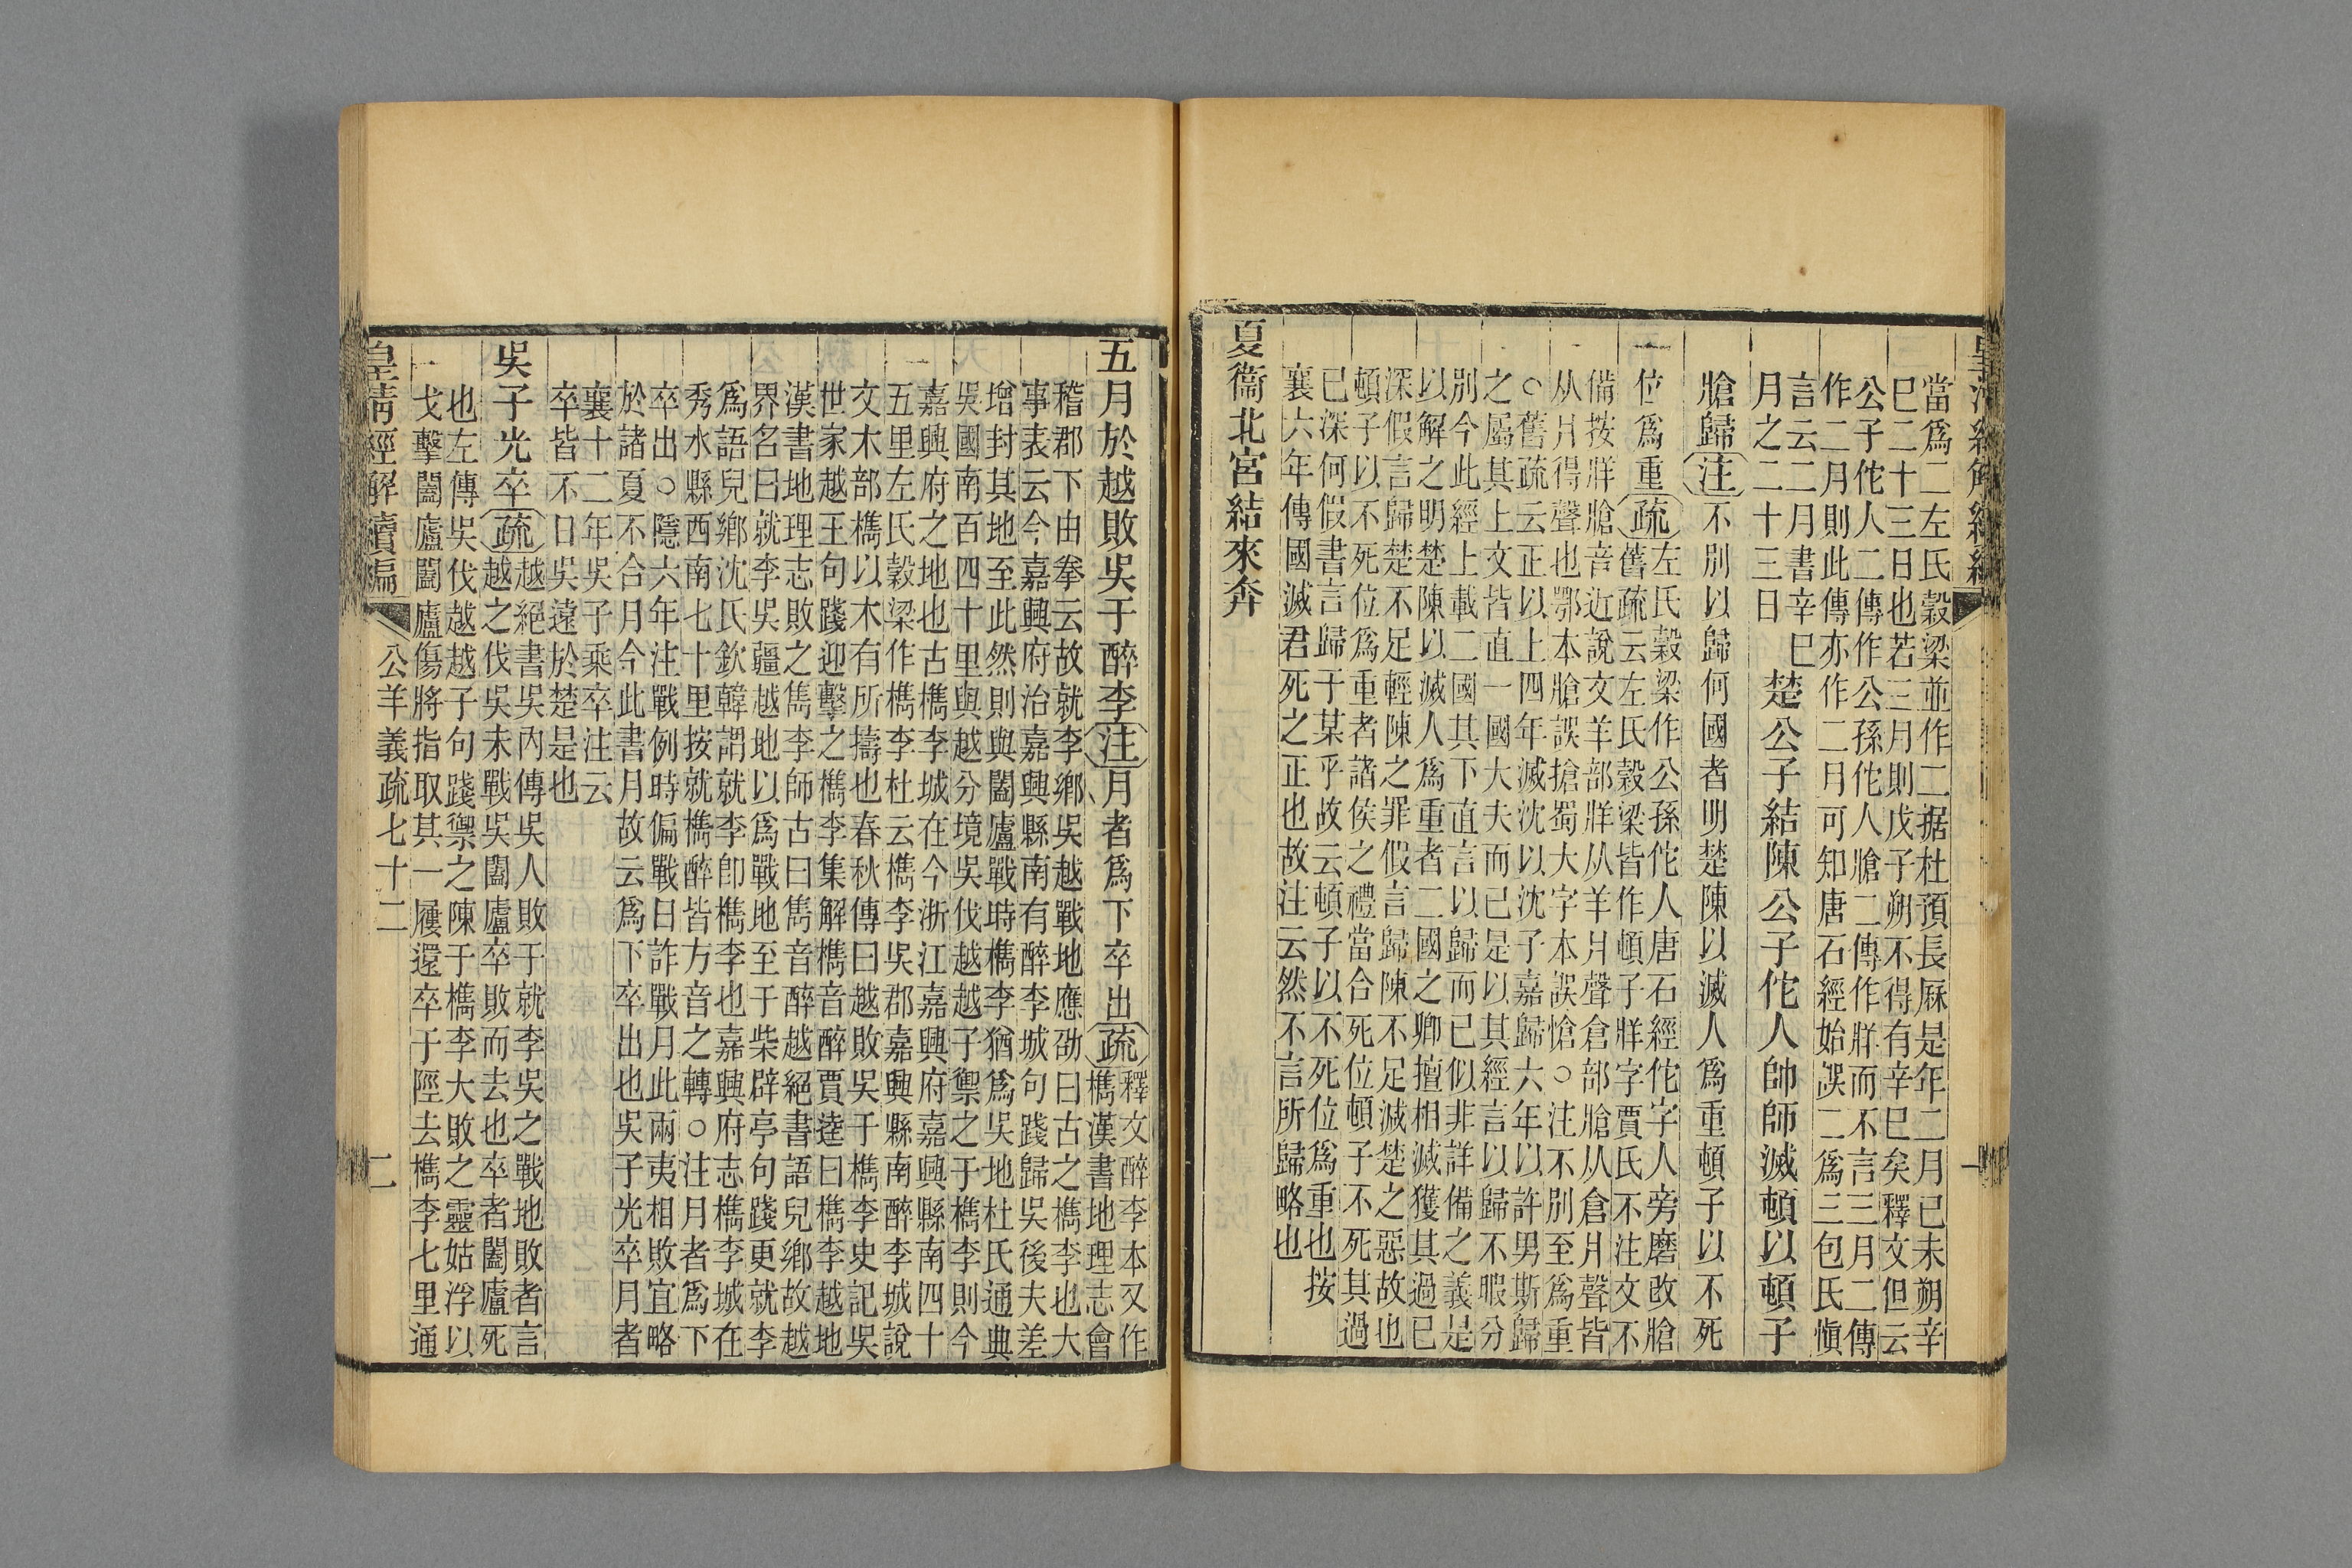 當爲二左氏穀梁並作二据杜預長厤是年二月己未朔辛
巳二十三日也若三月則戊子朔不得有辛巳矣釋文但云
公子佗人二傳作公孫佗人牄二傳作牂而不言三月二傳
作二月則此傳亦作二月可知唐石經始誤二爲三包氏愼
言云二月書辛巳
月之二十三日
楚公子結陳公子佗人帥師滅頓以頓子
牄歸注不別以歸何國者明楚陳以滅人爲重頓子以不死
位爲重疏左氏穀梁作公孫佗人唐石經佗字人旁磨改牄
舊疏云左氏穀梁皆作頓子牂字賈氏不注文不
備按牂牄音近說文羊部牂从羊爿聲倉部牄从倉爿聲皆
从爿得聲也鄂本牄誤搶蜀大字本誤愴○注不別至爲重
○舊疏云正以上四年滅沈以沈子嘉歸六年以許男斯歸
之屬其上文皆直一國大夫而已是以其經言以歸不暇分
別今此經上載二國其下直言以歸而已似非詳備之義是
以解之明楚陳以滅人爲重者二國之卿擅相滅獲其過已
深假言歸楚不足輕陳之罪假言歸陳不足滅楚之惡故也
頓子以不死位爲重者諸侯之禮當合死位頓子不死其過
已深何假書言歸于某乎故云頓子以不死位爲重也按
襄六年傳國滅君死之正也故注云然不言所歸略也
夏衞北宮結來奔
五月於越敗吳于醉李注月者爲下卒出疏釋文醉李本又作
檇漢書地理志會
稽郡下由拳云故就李鄉吳越戰地應劭曰古之檇李也大
事表云今嘉興府治嘉興縣南有醉李城句踐歸吳後夫差
增封其地至此然則與闔廬戰時檇李猶爲吳地杜氏通典
吳國南百四十里與越分境吳伐越越子禦之于檇李則今
嘉興府之地也古檇李城在今浙江嘉興府嘉興縣南四十
五里左氏穀梁作檇李杜云檇李吳郡嘉興縣南醉李城說
文木部檇以木有所擣也春秋傳曰越敗吳于檇李史記吳
世家越王句踐迎擊之檇李集解檇音醉賈逵曰檇李越地
漢書地理志敗之雋李師古曰雋音醉越絕書語兒鄉故越
界名曰就李吳疆越地以爲戰地至于柴辟亭句踐更就李
爲語兒鄉沈氏欽韓謂就李卽檇李也嘉興府志檇李城在
秀水縣西南七十里按就檇醉皆方音之轉○注月者爲下
卒出○隱六年注戰例時偏戰日詐戰月此兩夷相敗宜略
於諸夏不合月今此書月故云爲下卒出也吳子光卒月者
襄十二年吳子乘卒注云
卒皆不日吳遠於楚是也
吳子光卒疏越絕書吳內傳吳人敗于就李吳之戰地敗者言
越之伐吳未戰吳闔廬卒敗而去也卒者闔廬死
也左傳吳伐越越子句踐禦之陳于檇李大敗之靈姑浮以
戈擊闔廬闔廬傷將指取其一屨還卒于陘去檇李七里通
皇清經解續編 公羊義疏七十二 二